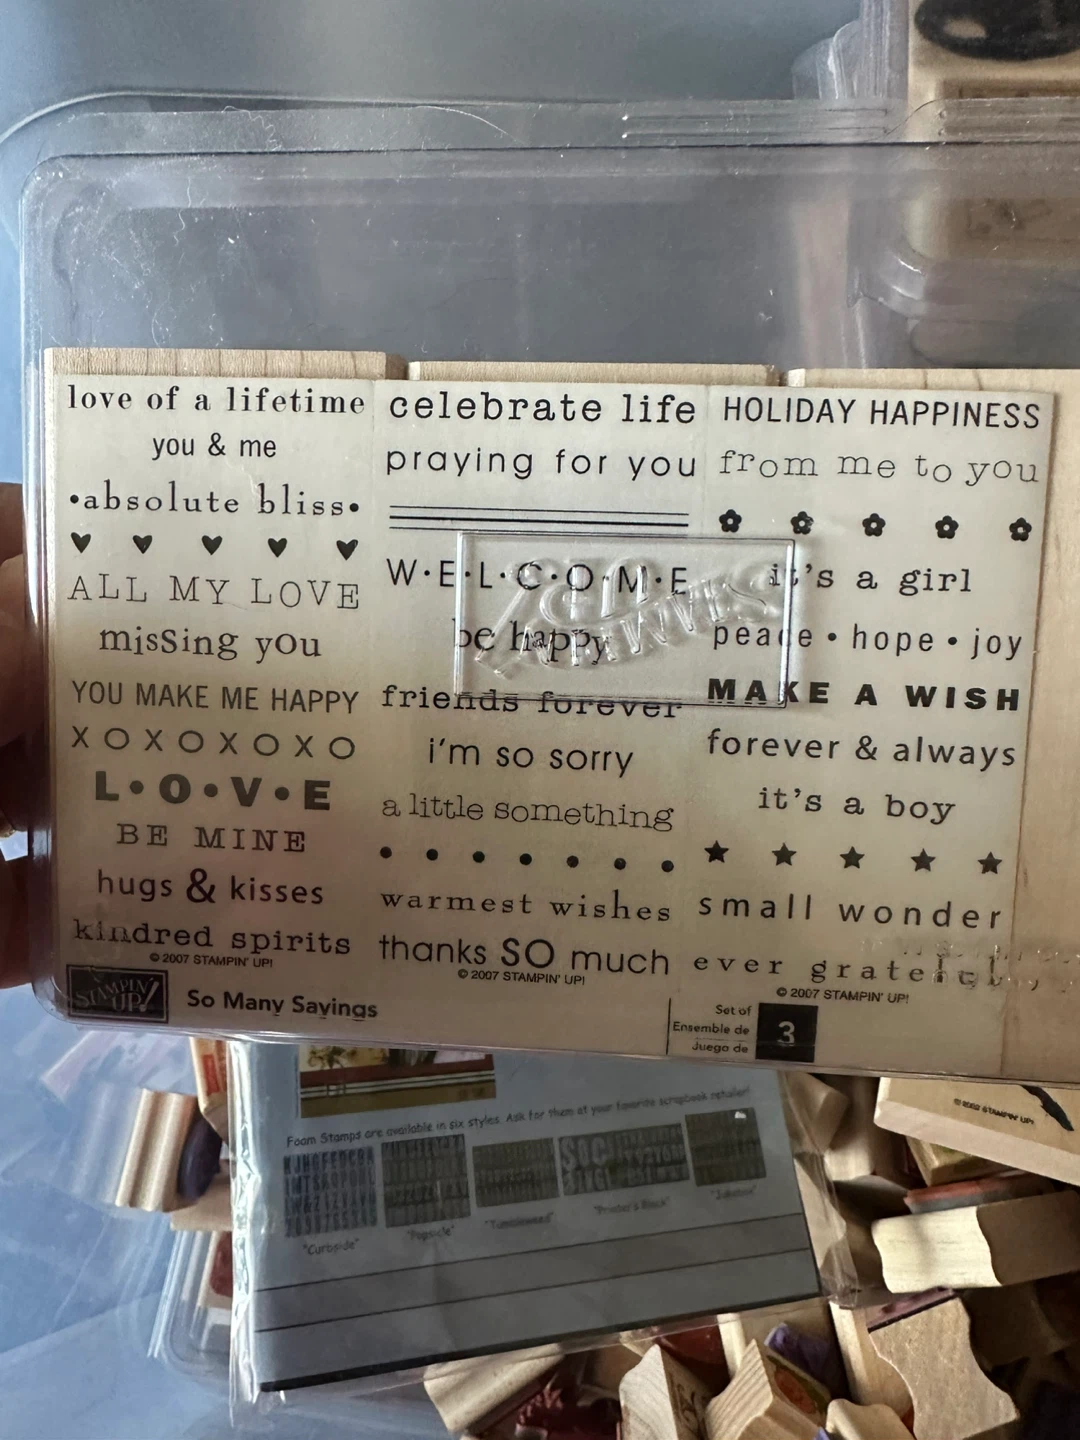 love of a lifetime
you & me
•absolute bliss•
ALL MY LOVE
misSing yOu
YOU MAKE ME HAPPY
XOXOXOXO
L•O•V•E
BE MINE
hugs & kisses
kindred spirits
© 2007 STAMPIN' UP!
celebrate life
praying for you
W•E•L•C•O•M•E
be happy
friends forever
i'm so sorry
a little something
warmest wishes
thanks SO much
© 2007 STAMPIN' UP!
HOLIDAY HAPPINESS
from me to you
it's a girl
peace • hope • joy
MAKE A WISH
forever & always
it's a boy
small wonder
ever grateful
© 2007 STAMPIN' UP!
STAMPIN' UP!
So Many Sayings
Set of
Ensemble de
Juego de
3
Foam Stamps are available in six styles. Ask for them at your favorite scrapbook retailer!
"Curbside"
"Popsicle"
"Tumbleweed"
"Printer's Block"
© 2002 STAMPIN' UP!